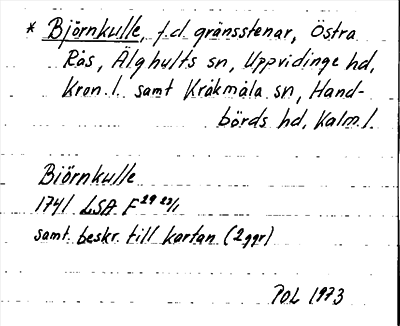 * Björnkulle, f.d. gränsstenar, Östra
Rås, Älghults sn, Uppvidinge hd,
Kron.l. samt Kråkmåla sn, Hand-
börds hd, Kalm.l.
Biörnkulle
1741 LSA F29 23/1
samt beskr. till kartan (2ggr)
POL 1973